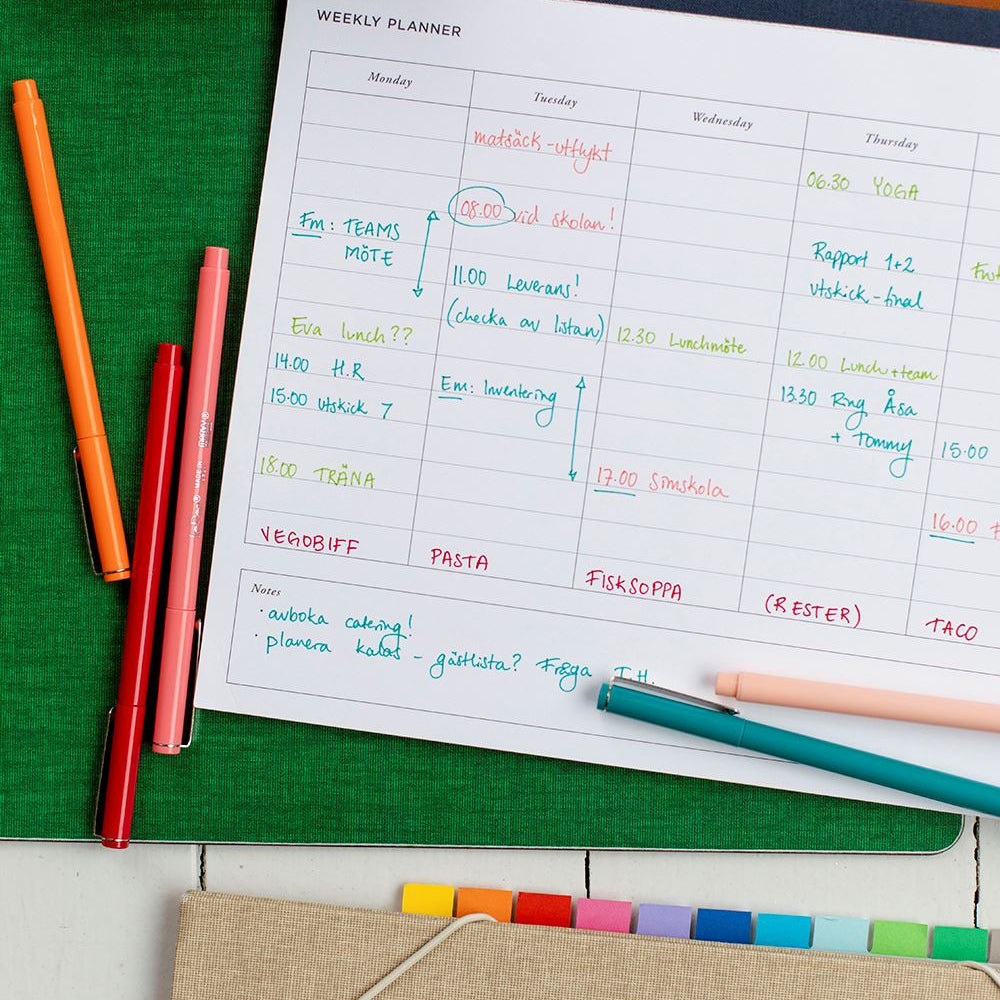 WEEKLY PLANNER
Monday
Fm: TEAMS
MÖTE
Eva lunch??
14.00 H.R
15.00 Utskick 7
18.00 TRÄNA
VEGOBIFF
Tuesday
matsäck-utflykt
08.00 vid skolan!
11.00 Leverans!
(checka av listan)
Em: Inventering
PASTA
Wednesday
12.30 Lunchmöte
17.00 Simskola
FISKSOPPA
Thursday
06.30 YOGA
Rapport 1+2
utskick-final
12.00 Lunch + team
13.30 Ring Åsa
+ Tommy
(RESTER)
15.00
16.00
TACO
Notes
· avboka catering!
· planera kalas - gästlista? Fråga T.H.
MADE IN